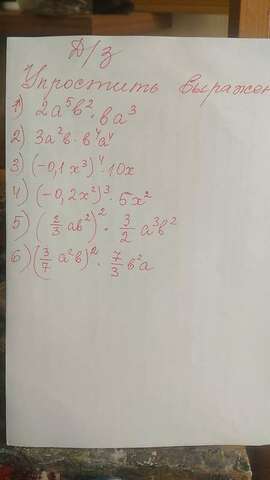 Д/з
Упростить выражен
1) 2a⁵b²·ba³
2) 3a²b·b⁴a⁴
3) (-0,1x³)⁴·10x
4) (-0,2x²)³·5x²
5) (2/3 ab²)²·3/2 a³b²
6) (3/7 a²b)²·7/3 b²a